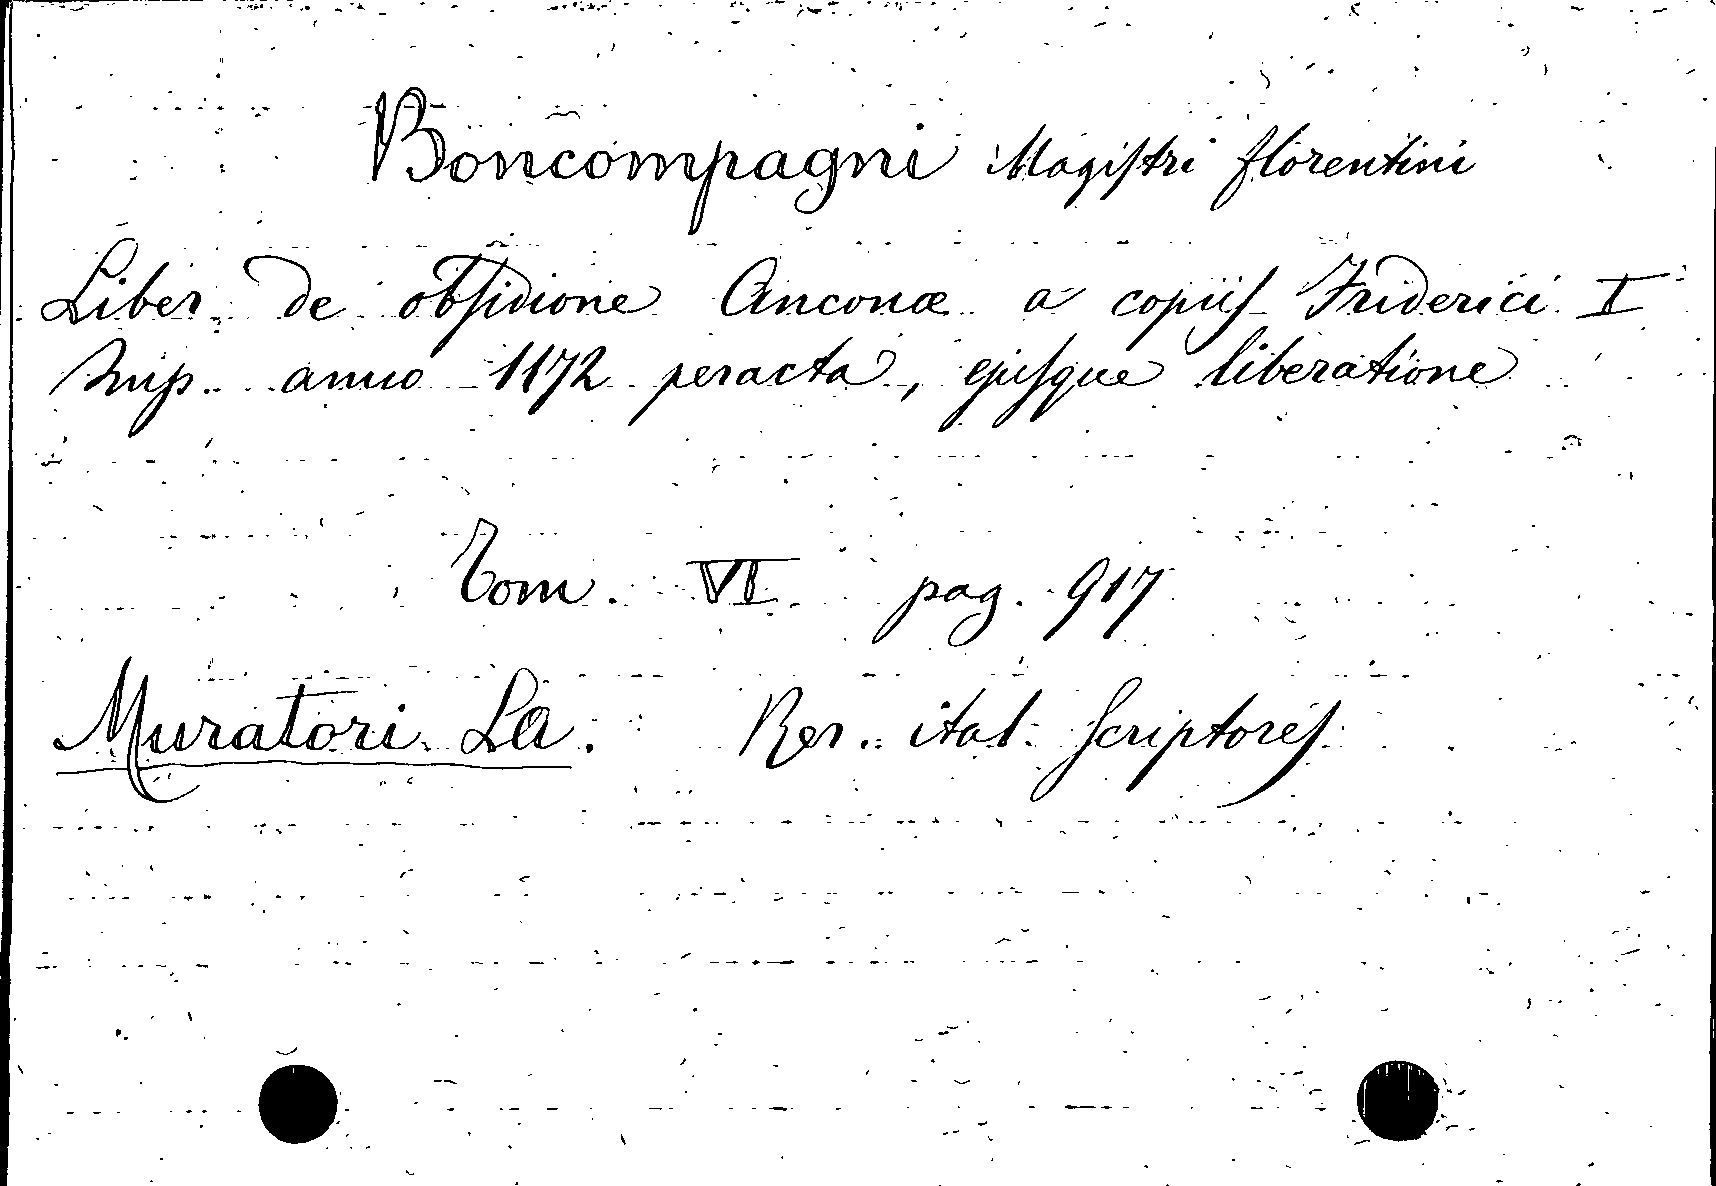 Boncompagni Magiſtri florentini
Liber de obſidione Anconæ a copiiſ Friderici I
Imp. anno 1172 peracta, ejuſque liberatione
Tom. VI pag. 917
Muratori La. Rer. ital. Scriptoreſ